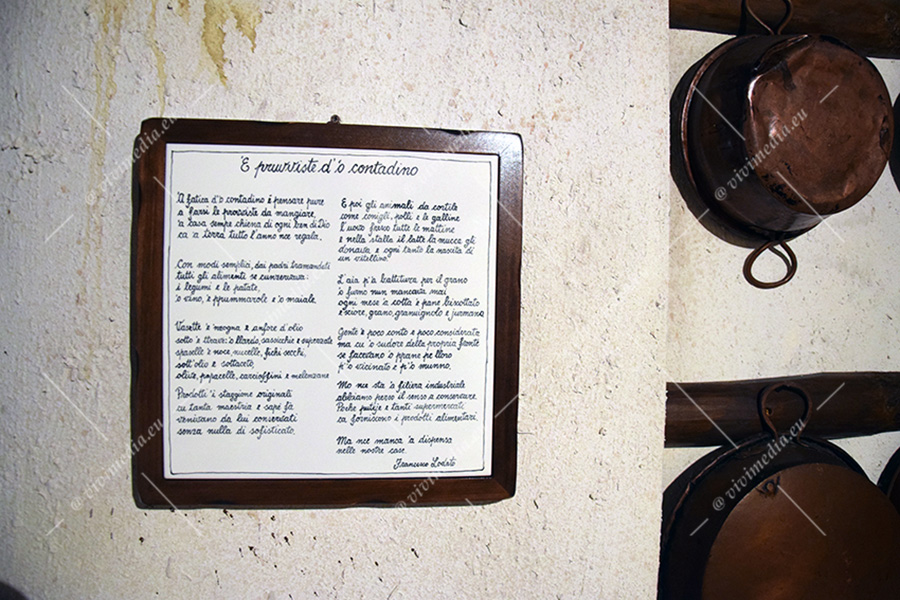 'E pruvviste d''o contadino
'A fatica d''o contadino è pensare pure
a farsi le provviste da mangiare,
'a casa sempre chiena di ogni ben di Dio
ca 'a terra tutto l'anno nce regala.
Con modi semplici, dai padri tramandati
tutti gli alimenti se cunservava:
i legumi e le patate,
'o vino, 'e ppummarole e 'o maiale.
Vasette 'e nzogna e anfore d'olio
sotto 'e ttrave: 'o llardo, sasicchie e
spaselle 'e noce, nucelle, fichi secchi,
sott'olio e sottaceto,
olive, papacelle, carcioffini e melenzane
Prodotti 'i staggione originali
cu tanta maestria e sapè fà
venivano da lui conservati
senza nulla di sofisticato.
E poi gli animali da cortile
come conigli, polli e le galline
l'uovo fresco tutte le mattine
e nella stalla il latte la mucca gli
donava, e ogni tanto la nascita di
un vitellino.
L'aia p''a battitura per il grano
'o furno nun mancava mai
ogni mese 'a cotta 'e pane biscottato
e sciore, grano, granuignolo e jurmana
Gente 'e poco conto e poco considerata
ma cu 'o sudore della propria fronte
se facevano 'o ppane pe lloro
p''o vicinato e p''o munno.
Mo nce sta 'a filiera industriale
abbiamo perso il senso a conservare
Poche puteje e tanti supermercati
ca forniscono i prodotti alimentari.
Ma nce manca 'a dispensa
nelle nostre case.
Francesco Lodato
@ vivimedia.eu
@ vivimedia.eu
@ vivimedia.eu
@ vivimedia.eu
@ vivimedia.eu
@ vivimedia.eu
@ vivimedia.eu
@ vivimedia.eu